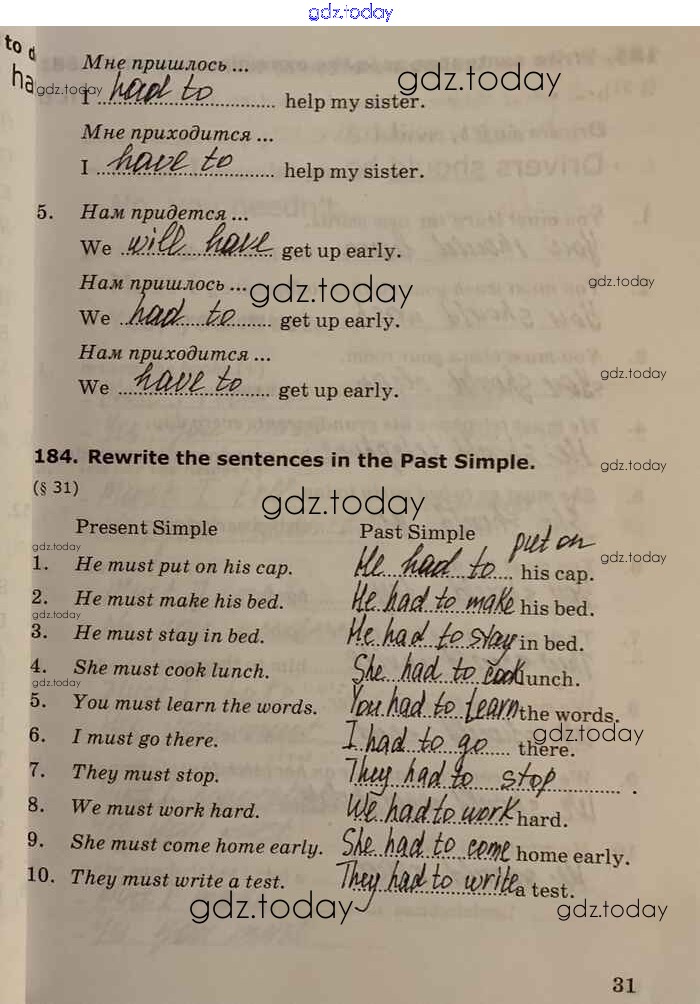 gdz.today
to d
ha
Мне пришлось ...
gdz.today
gdz.today
I had to help my sister.
Мне приходится ...
I have to help my sister.
5. Нам придется ...
We will have get up early.
Нам пришлось ...
gdz.today
gdz.today
We had to get up early.
Нам приходится ...
gdz.today
We have to get up early.
184. Rewrite the sentences in the Past Simple.
gdz.today
(§ 31)
gdz.today
Present Simple Past Simple
gdz.today
put on
gdz.today
1. He must put on his cap. He had to his cap.
2. He must make his bed. He had to make his bed.
gdz.today
3. He must stay in bed. He had to stay in bed.
4. She must cook lunch. She had to cook lunch.
gdz.today
5. You must learn the words. You had to learn the words.
6. I must go there. I had to go there.
gdz.today
7. They must stop. They had to stop.
8. We must work hard. We had to work hard.
9. She must come home early. She had to come home early.
10. They must write a test. They had to write a test.
gdz.today
gdz.today
31